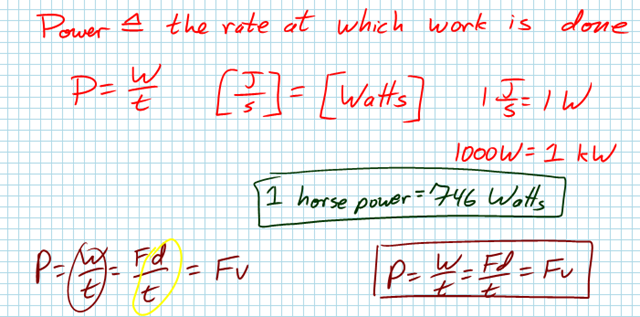 Power ≜ the rate at which work is done
P = W/t [J/s] = [Watts] 1 J/s = 1 W
1000W = 1 kW
1 horse power = 746 Watts
P = W/t = Fd/t = Fv P = W/t = Fd/t = Fv